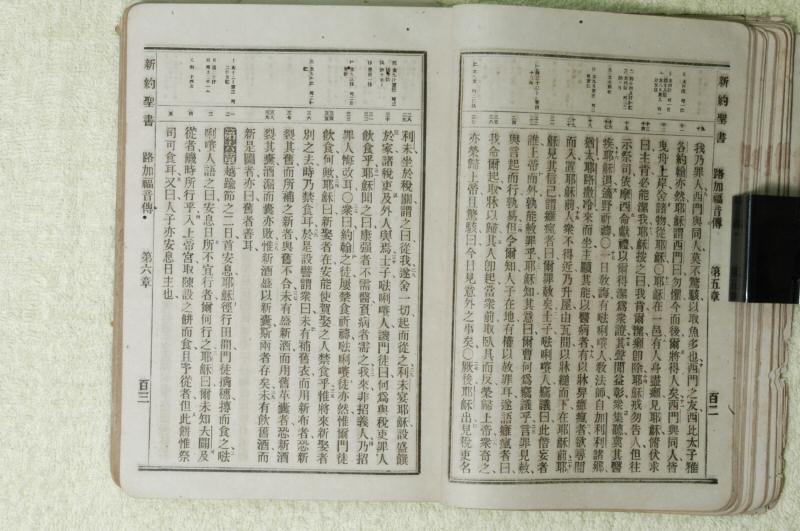 新約聖書 路加福音傳 第五章 百二
我乃罪人西門與同人莫不驚駭以取魚多也西門之友西比太子雅
各約翰亦然耶穌謂西門曰勿懼今而後爾將得人矣西門與同人皆
曳舟上岸舍諸物從耶穌〇耶穌在一邑有人身盡癩見耶穌俯伏求
曰主肯必能潔我耶穌按之曰我肯爾潔癩即除耶穌戒勿告人但往
示祭司依摩西命獻禮以爾得潔為衆證其聲聞益彰衆集聽冀其醫
疾耶穌退
猶太耶路撒冷來而坐主顯其能以醫病者有以牀舁癱瘋者欲尋間
而入置耶穌前人衆不得近乃升屋由瓦間以牀縋而下在耶穌前耶
穌見其信己謂癱瘋者曰爾罪赦矣士子𠵽唎㘔人竊議曰此僭妄者
誰上帝而外孰能赦罪乎耶穌知其意曰爾曹何為竊議乎言罪見赦
與言起而行孰易但令爾知人子在地有權以赦罪耳遂語癱瘋者曰
我命爾起取牀以歸其人卽起當衆前取臥具而反榮歸上帝衆奇之
亦榮歸上帝且驚駭曰今日見意外之事矣〇厥後耶穌出見稅吏名
利未坐於稅關謂之曰從我遂舍一切起而從之利未宴耶穌設盛饌
於家諸稅吏及外人與焉士子𠵽唎㘔人譏門徒曰何為與稅吏罪人
飲食乎耶穌聞之曰康强者不需醫負病者需之我來非招義人乃招
罪人悔改耳〇衆曰約翰之徒屢禁食祈禱𠵽唎㘔徒亦然惟爾門徒
飲食何歟耶穌曰新娶者在安能使賀娶之人禁食乎惟將來新娶者
別之去時乃禁食耳於是設譬謂衆曰未有補舊衣而用新布者恐新
裂其舊而所補之新者與舊不合未有盛新酒而用舊革囊者恐新酒
裂其囊酒漏而囊亦敗惟新酒盛以新囊斯兩者存矣未有飲舊酒而
新是圖者亦曰舊者善耳
第六章 越踰節之二日首安息耶穌徑行田間門徒摘穗摶而食之𠵽
唎㘔人語之曰安息日所不宜行者爾何行之耶穌曰爾未知大闢及
從者饑時所行乎入上帝宮取陳設之餅而食且予從者但此餅惟祭
司可食耳又曰人子亦安息日主也
新約聖書 路加福音傳 第六章 百三